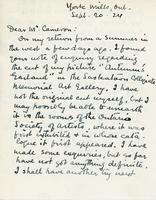 York Mills, Ont.
Sept. 20 - 24
Dear Mr. Cameron:
On my return from a summer in
the west a few days ago, I found
your note of enquiry regarding
the cut of my picture "Autumn's
Garland" in the Saskatoon Collegiate
Memorial Art Gallery. I have
not the original cut myself, but I
may possibly be able to unearth
it in the rooms of the Ontario
Society of Artists, where it was
first exhibited & in whose cata-
logue it first appeared. I have
made some enquiries, but so far
have not got anything definite.
I shall have another try next